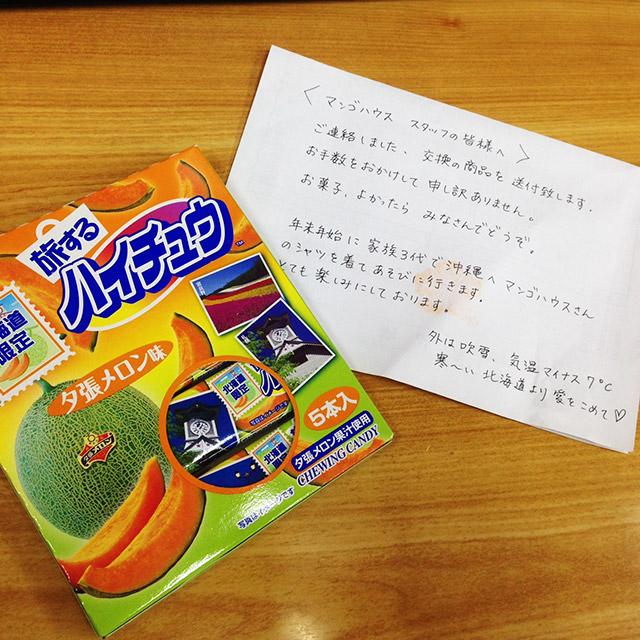 旅する
ハイチュウ
TM
北海道
限定
夕張メロン味
夕張メロン
北海道
限定
5本入
夕張メロン果汁使用
CHEWING CANDY
写真はイメージです
〈 マンゴハウス スタッフの皆様へ 〉
ご連絡しました、交換の商品を送付致します.
お手数をおかけして申し訳ありません。
お菓子、よかったら みなさんでどうぞ。
年末年始に家族3代で沖縄へ マンゴハウスさん
のシャツを着てあそびに行きます.
とても楽しみにしております.
外は吹雪、気温マイナス7℃
寒〜い 北海道より愛をこめて♡